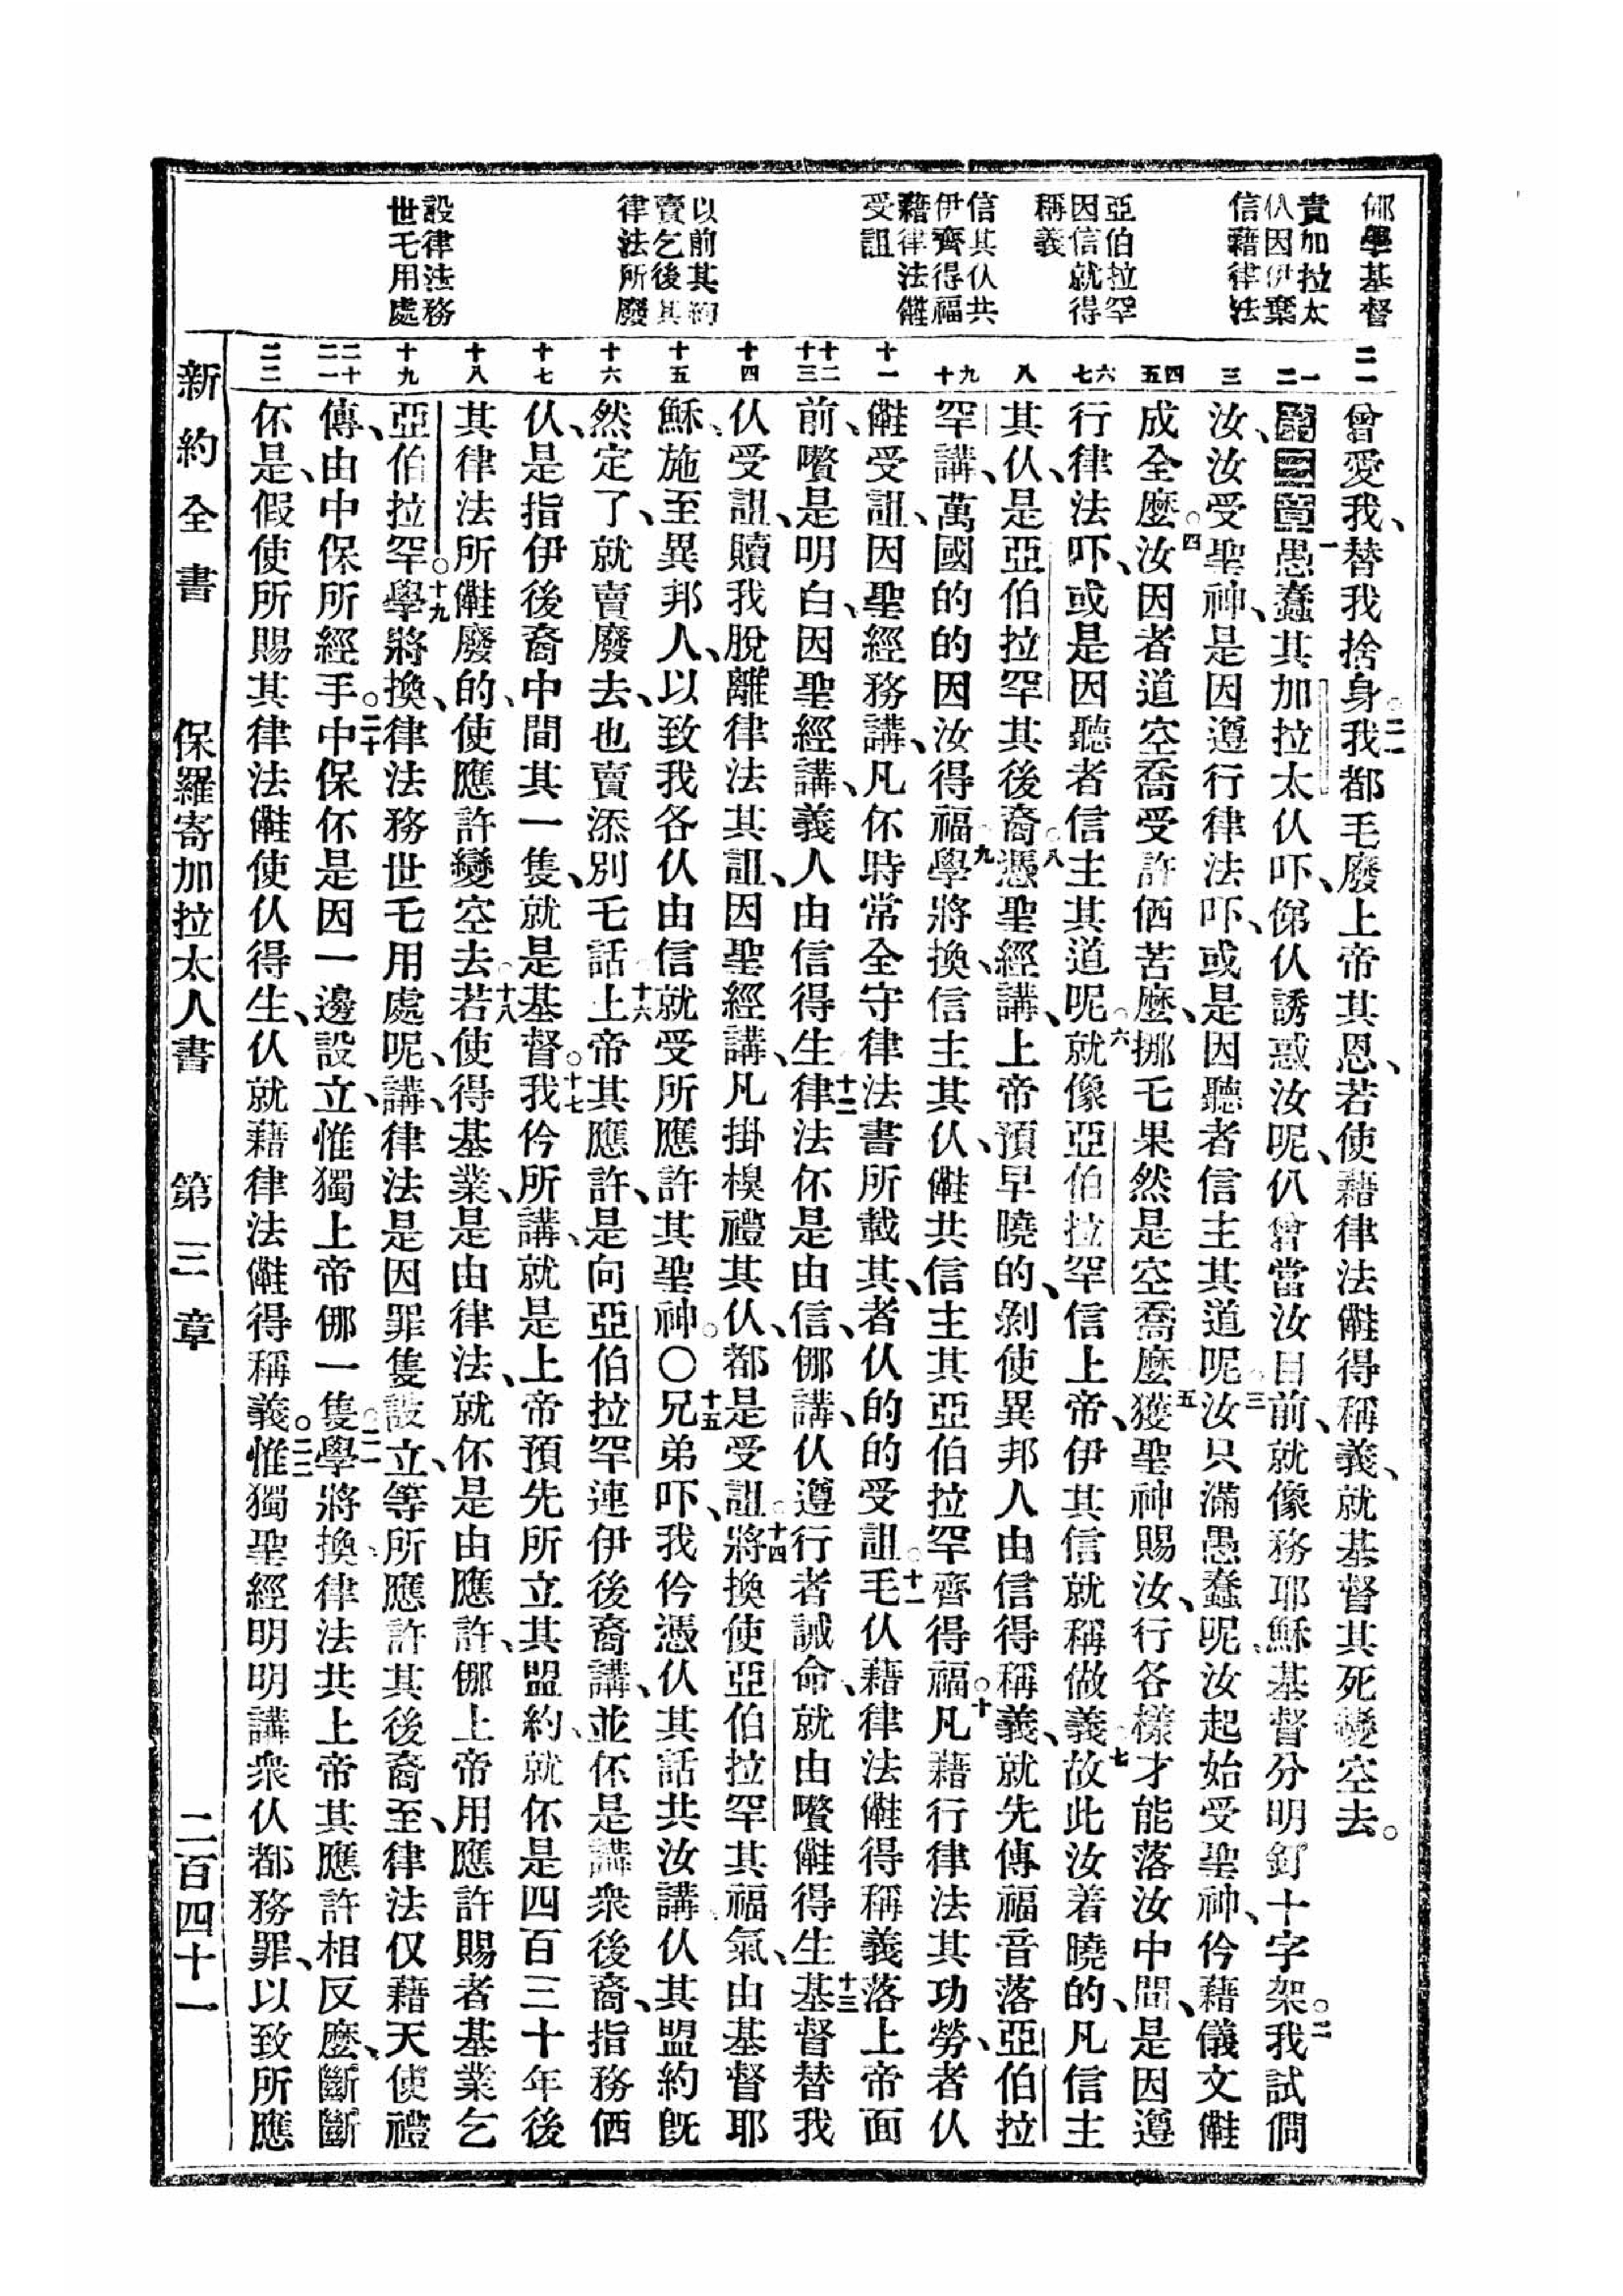 㑚學基督
責加拉太
仈因伊棄
信藉律法
亞伯拉罕
因信就得
稱義
信其仈共
伊齊得福
藉律法𣍐
受詛
以前其約
賣乞後其
律法所廢
設律法務
世乇用處
二一
一
二
三
四
五
六
七
八
九
十
十一
十二
十三
十四
十五
十六
十七
十八
十九
二十
二一
二二
曾愛我、替我捨身。二一我都毛廢上帝其恩、若使藉律法𣍐得稱義、就基督其死變空去。
第三章一愚蠢其加拉太仈吓、㑚仈誘惑汝呢、仈曾當汝目前、就像務耶穌基督分明釘十字架。二我試問
汝、汝受聖神、是因遵行律法吓、或是因聽者信主其道呢。三汝只滿愚蠢呢、汝起始受聖神、仱藉儀文𣍐
成全麽。四汝因者道空喬受許価苦麽、挪乇果然是空喬麽。五獲聖神賜汝、行各樣才能落汝中間、是因遵
行律法吓、或是因聽者信主其道呢。六就像亞伯拉罕信上帝、伊其信就稱做義。七故此汝着曉的、凡信主
其仈、是亞伯拉罕其後裔。八憑聖經講、上帝預早曉的、剝使異邦人由信得稱義、就先傳福音落亞伯拉
罕講、萬國的的因汝得福。九學將換、信主其仈、𣍐共信主其亞伯拉罕齊得福。十凡藉行律法其功勞、者仈
𣍐受詛、因聖經務講、凡伓時常全守律法書所載其、者仈的的受詛。十一乇仈藉律法𣍐得稱義落上帝面
前、嚽是明白、因聖經講、義人由信得生。十二律法伓是由信、㑚講、仈遵行者誡命、就由嚽𣍐得生。十三基督替我
仈受詛、贖我脫離律法其詛、因聖經講、凡掛槼禮其仈、都是受詛。十四將換使亞伯拉罕其福氣、由基督耶
穌、施至異邦人、以致我各仈由信就受所應許其聖神。〇十五兄弟吓、我仱憑仈其話共汝講、仈其盟約旣
然定了、就賣廢去、也賣添別乇話。十六上帝其應許、是向亞伯拉罕連伊後裔講、並伓是講衆後裔、指務価
仈、是指伊後裔中間其一隻、就是基督。十七我仱所講、就是上帝預先所立其盟約、就伓是四百三十年後
其律法所𣍐廢的、使應許變空去。十八若使得基業、是由律法、就伓是由應許、㑚上帝用應許賜者基業乞
亞伯拉罕。十九學將換、律法務世乇用處呢、講、律法是因罪隻設立、等所應許其後裔至、律法仅藉天使禮
傳、由中保所經手。二十中保伓是因一邊設立、惟獨上帝㑚一隻。二一學將換、律法共上帝其應許相反麽、斷斷
伓是、假使所賜其律法𣍐使仈得生、仈就藉律法𣍐得稱義。二二惟獨聖經明明講衆仈都務罪、以致所應
新約全書　保羅寄加拉太人書　第三章　二百四十一